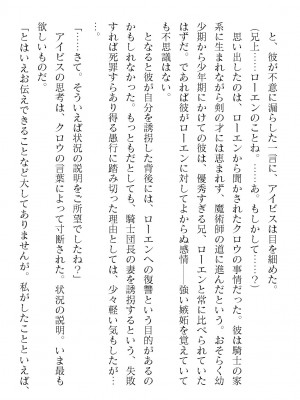 と、彼が不意に漏らした一言に、アイビスは目を細めた。
（兄上……ローエンのことね。……あ。もしかして……？）
思い出したのは、ローエンから聞かされたクロウの事情だった。彼は騎士の家
系に生まれながら剣の才には恵まれず、魔術師の道に進んだという。おそらく幼
少期から少年期にかけての彼は、優秀すぎる兄、ローエンと常に比べられていた
はずだ。であれば彼がローエンに対してよからぬ感情――強い嫉妬を覚えていて
も不思議はない。
となると彼が自分を誘拐した背後には、ローエンへの復讐という目的があるの
かもしれなかった。もっともだとしても、騎士団長の妻を誘拐するという、失敗
すれば死罪すらあり得る愚行に踏み切った理由としては、少々軽い気もしたが…
…。
「……さて。そういえば状況の説明をご所望でしたね？」
アイビスの思考は、クロウの言葉によって寸断された。状況の説明。いま最も
欲しいものだ。
「とはいえお伝えできることなど大してありませんが。私がしたことといえば、